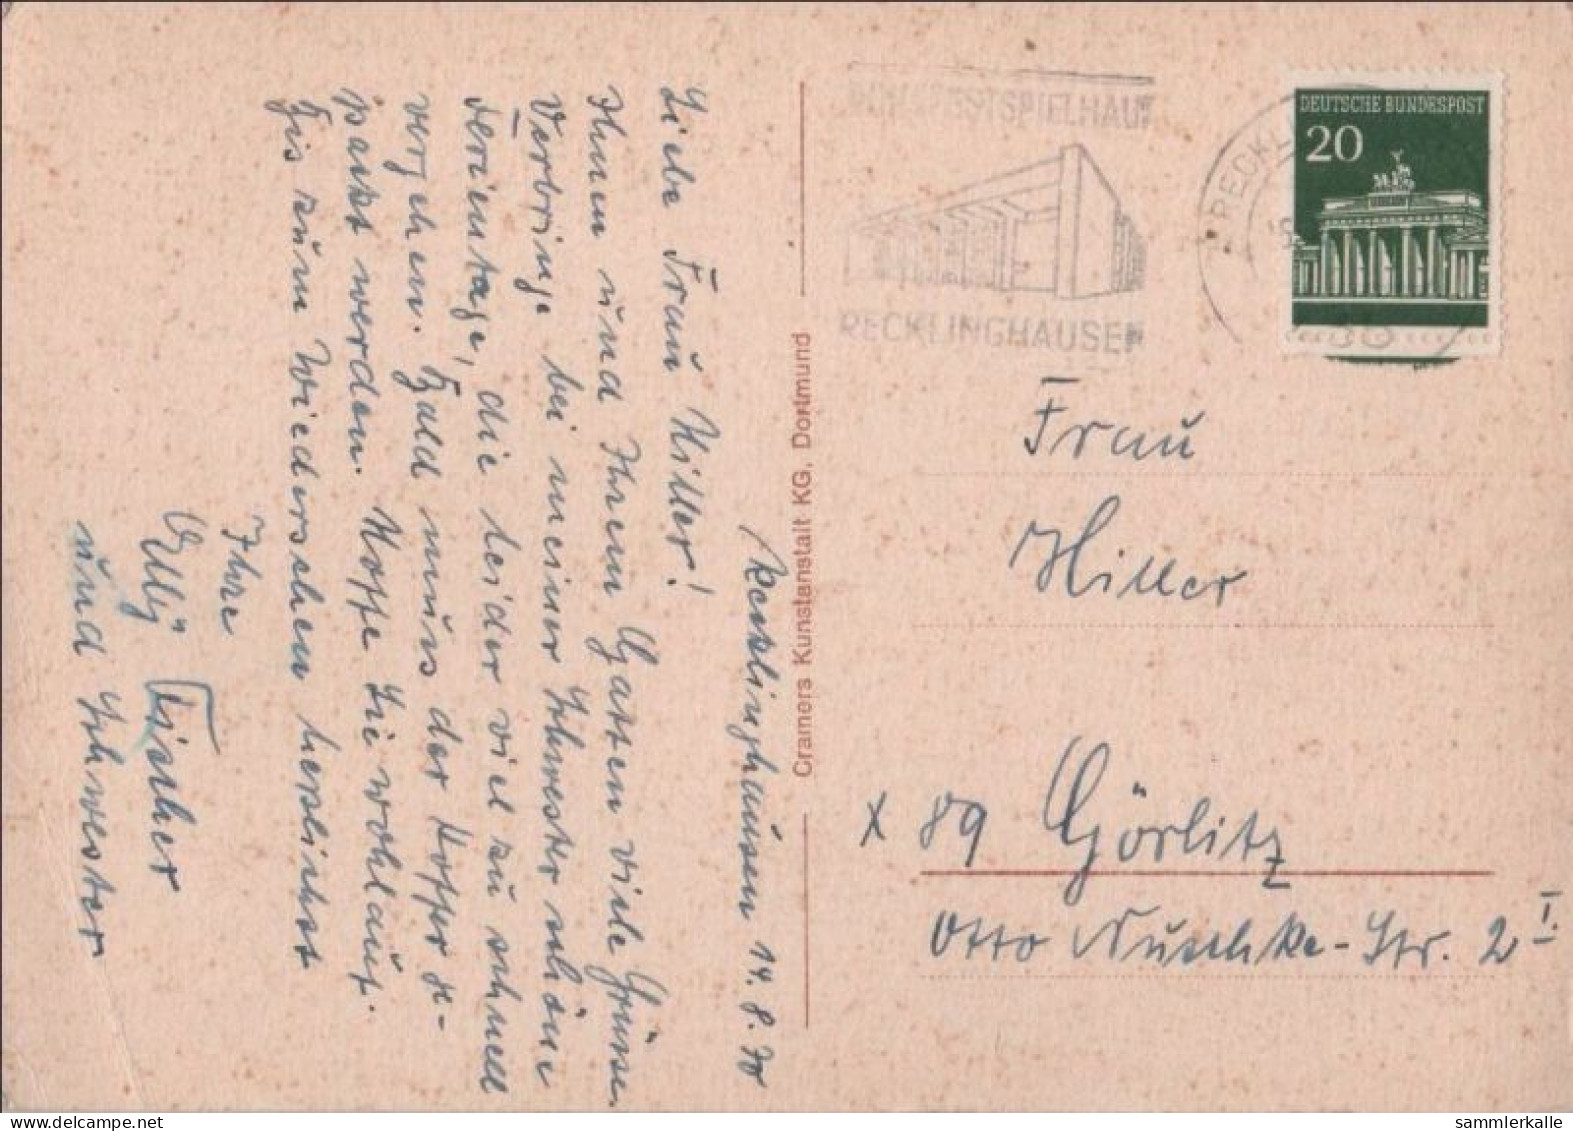 Recklinghausen 14. 8. 70
Liebe Frau Hiller!
Ihnen und Ihrem Gatten viele Grüsse.
Verbringe bei meiner Schwester schöne
Ferientage, die leider viel zu schnell
vergehen. Bald muss der Koffer ge-
packt werden. Hoffe Sie wohlauf.
Bis zum Wiedersehen herzlichst
Ihre
Elly Fischer
und Schwester
Cramers Kunstanstalt KG, Dortmund
RUHRFESTSPIELHAUS
RECKLINGHAUSEN
DEUTSCHE BUNDESPOST
20
Frau
Hiller
X 89 Görlitz
Otto Nuschke-Str. 2 I.
sammlerkalle